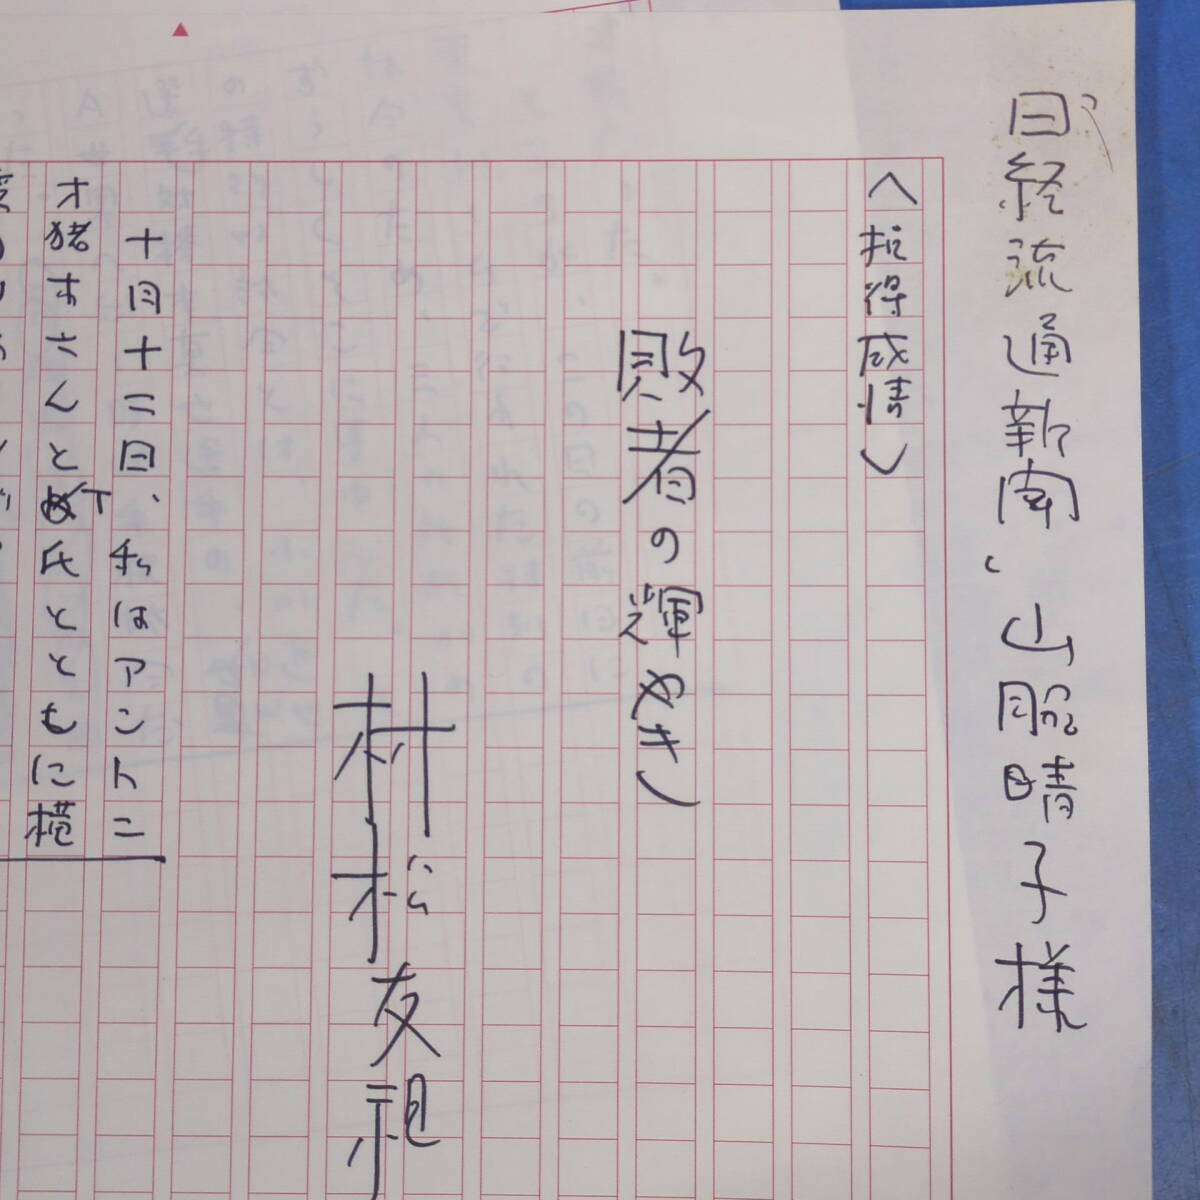 日経流通新聞、山脇晴子様
〈損得感情〉
敗者の輝やき
村松友視
十月十二日、私はアントニ
オ猪木さんとT氏とともに横